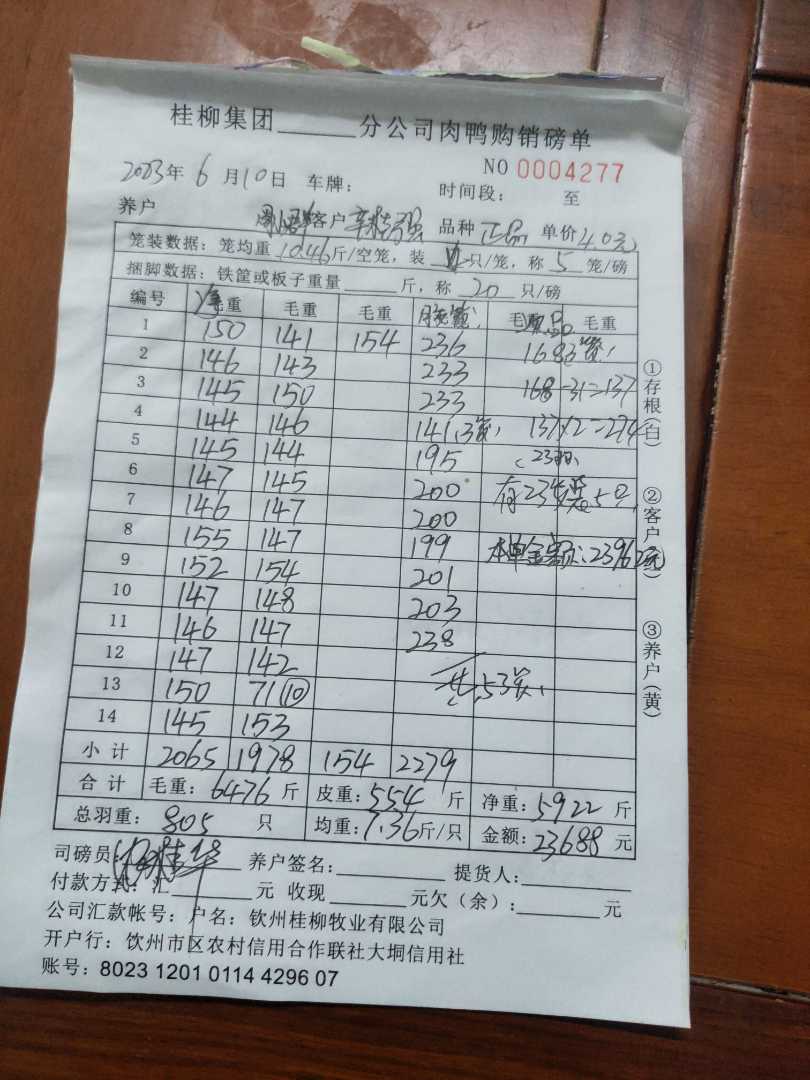 桂柳集团______分公司肉鸭购销磅单
NO 0004277
2023年 6 月 10日 车牌: 时间段: 至
养户 客户 品种 正品 单价 4.0元
笼装数据: 笼均重 10.46 斤/空笼, 装 只/笼, 称 5 笼/磅
捆脚数据: 铁筐或板子重量______斤, 称 20 只/磅
编号 净毛重 毛重 毛重 毛重 毛重
1 150 141 154 236 168 3笼
2 146 143 233
3 145 150 233 168-31=137
4 144 146 141.3笼 137×2=274
5 145 144 195 23只
6 147 145 200
7 146 147 200 有23笼装5只
8 155 147 199 本单金额:23962元
9 152 154 201
10 147 148 203
11 146 147 238
12 147 142
13 150 71⑩ 共53笼
14 145 153
小计 2065 1978 154 2279
合计 毛重: 6476 斤 皮重: 554 斤 净重: 5922 斤
总羽重: 805 只 均重: 7.36斤/只 金额: 23688 元
司磅员: 养户签名: 提货人:
付款方式: 汇______元 收现______元欠(余):______元
公司汇款帐号: 户名: 钦州桂柳牧业有限公司
开户行: 饮州市区农村信用合作联社大垌信用社
账号: 8023 1201 0114 4296 07
①存根(白) ②客户(红) ③养户(黄)